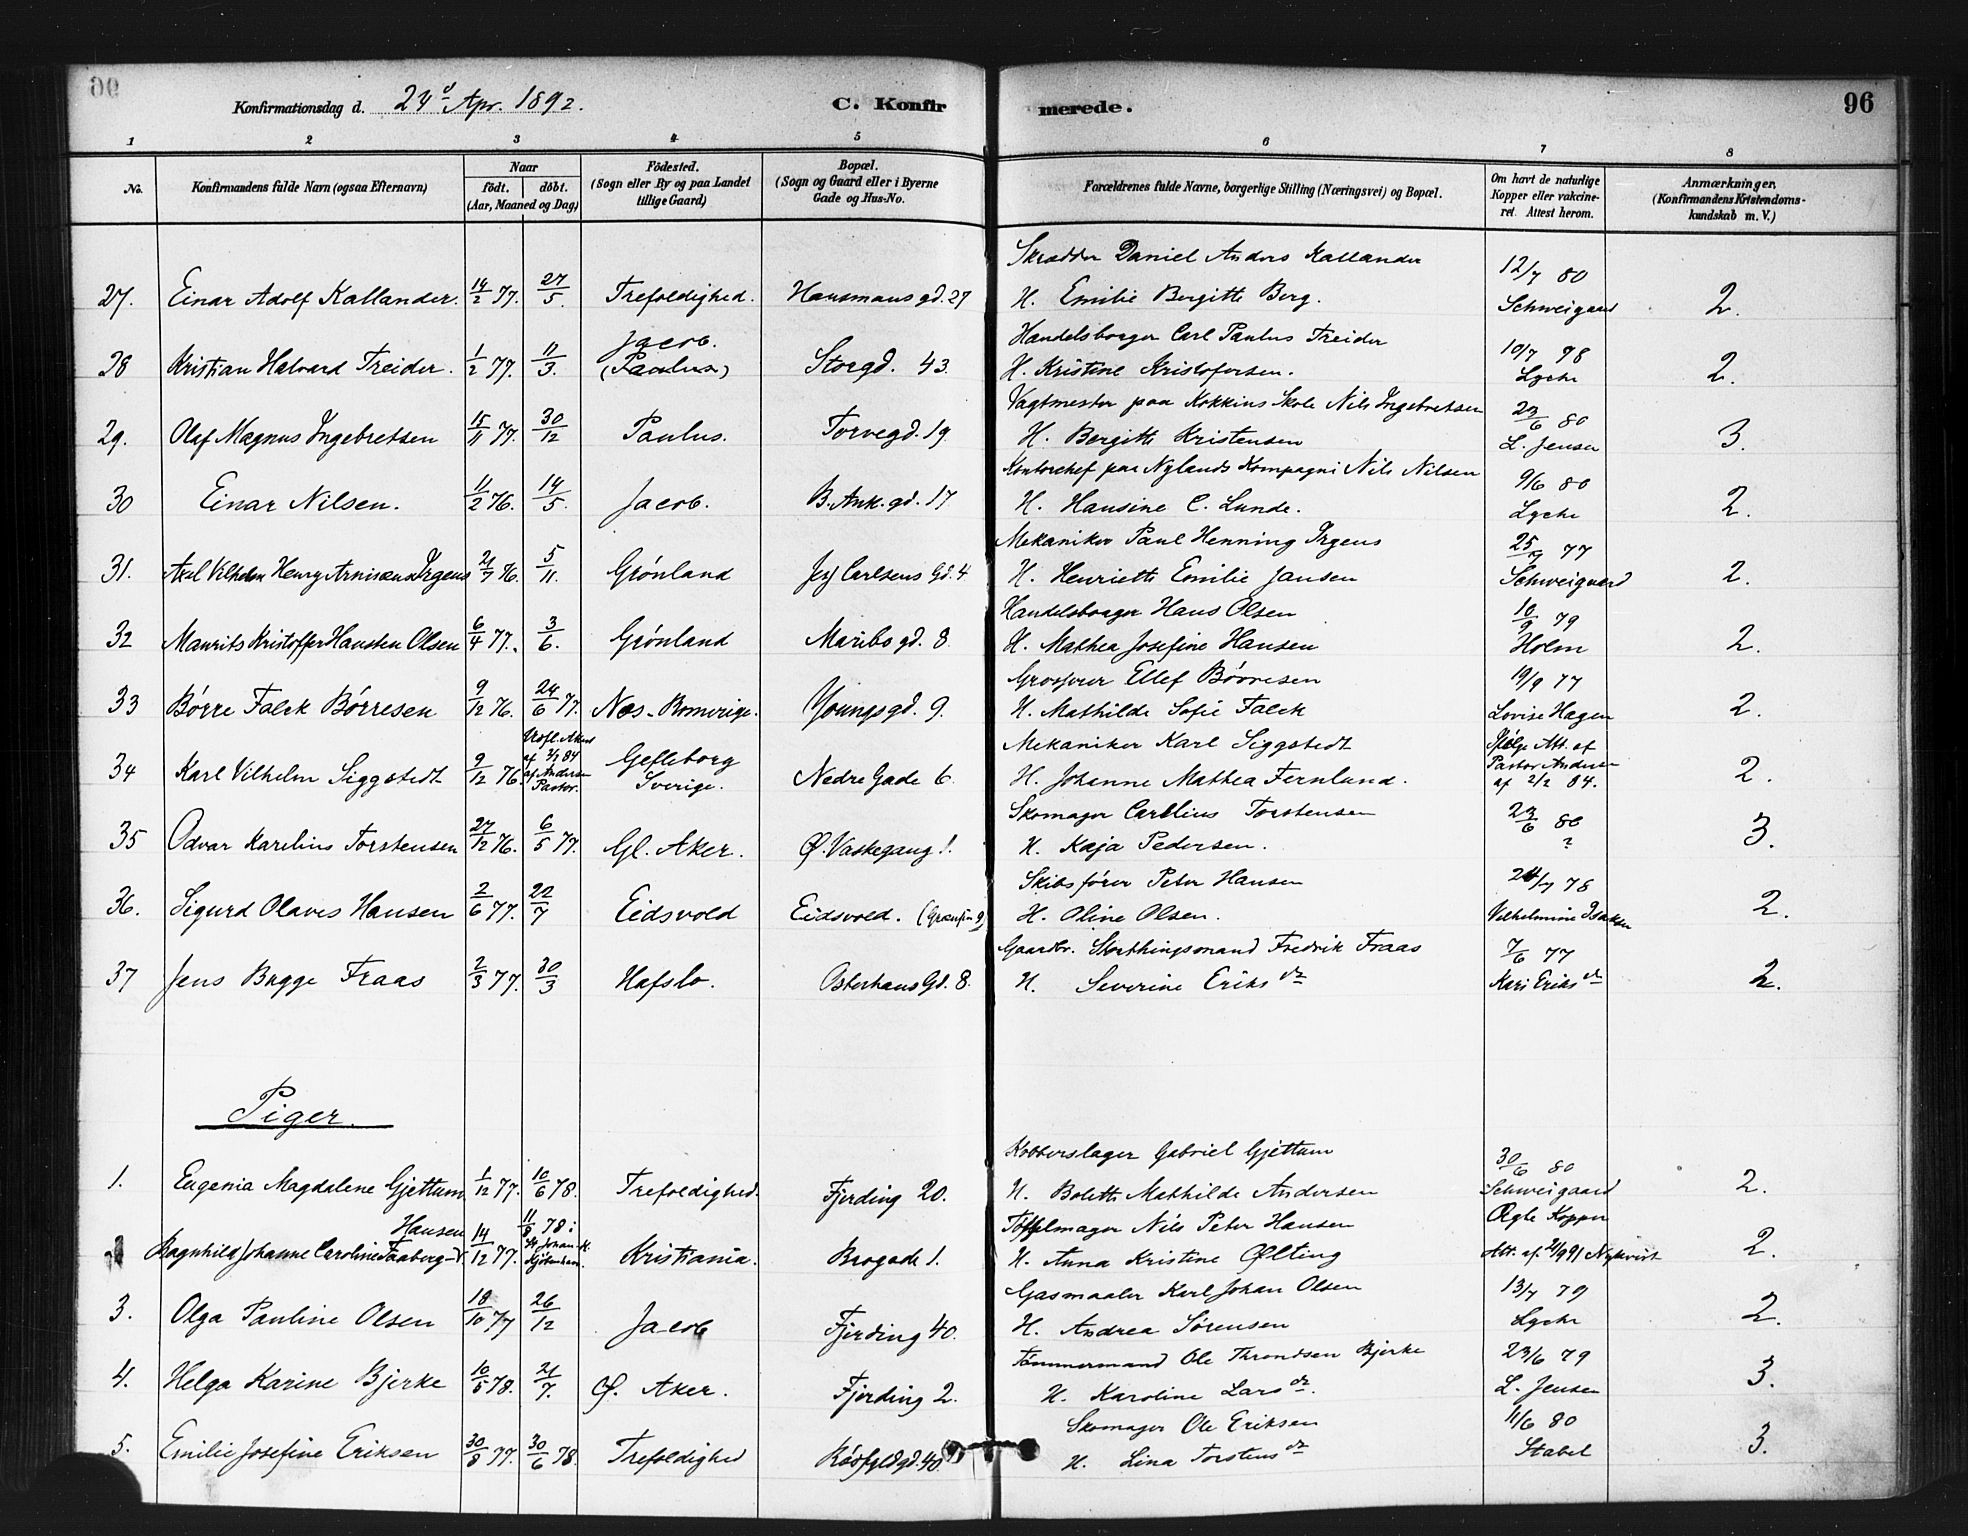 Konfirmationsdag d. 24de Apr. 1892. C. Konfirmerede. 96
1 2 3 4 5 6 7 8
No. Konfirmandens fulde Navn (ogsaa Efternavn) Naar født. døbt. (Aar, Maaned og Dag) Fødested. (Sogn eller By og paa Landet tillige Gaard) Bopæl. (Sogn og Gaard eller i Byerne Gade og Hus-No. Forældrenes fulde Navne, borgerlige Stilling (Næringsvei) og Bopæl. Om havt de naturlige Kopper eller vakcineret. Attest herom. Anmærkninger. (Konfirmandens Kristendomskundskab m. V.)
Skrædder Daniel Anders Kallander 12/7 80
27. Einar Adolf Kallander. 14/2 77. 27/5. Trefoldighed. Hausmans gd. 27 H. Emilie Bergitte Berg. Schweigaard 2.
Jacob. Handelsborger Carl Paulus Treider 10/7 78
28 Kristian Halvard Treider. 1/2 77. 11/3. (Paulus) Storgd. 43. H. Kristine Kristofersen. Lyche 2.
Vagtmester paa Kokkins Skole Nils Ingebretsen 23/6 80
29. Olaf Magnus Ingebretsen 15/11 77. 30/12 Paulus. Torvegd. 19. H. Bergitte Kristensen L. Jensen 3.
Kontorchef paa Nylands Kompagni Nils Nilsen 9/6 80
30 Einar Nilsen. 11/2 76. 14/5. Jacob. B. Ank. gd. 17 H. Hansine C. Lunde. Lyche 2.
Mekaniker Paul Henning Irgens 25/ 77
31. Axel Vilhelm Henry Irgens 21/7 76. 5/11. Grønland Carlsens Gd. 4 H. Henriette Emilie Jansen Schweigaard 2.
Handelsborger Hans Olsen 10/9 79
32 Maurits Kristoffer Hansten Olsen 6/4 77. 3/6. Grønland Maribo gd. 8. H. Mathea Josefine Hansen Holm 2.
Grosserer Ellef Børresen 19/9 77
33 Børre Falck Børresen 9/12 76. 24/6 77. Næs - Romerige. Youngs gd. 9. H. Mathilde Sofie Falck Lovise Hagen 2.
af 2/2 84 Gefleborg Mekaniker Karl Siggstedt Ifølge Att. af
34 Karl Vilhelm Siggstedt 9/12 76. af Andersen Pastor. Sverige. Nedre Gade 6. H. Johanne Mathea Fernlund. Pastor Andersen af 2/2 84. 2.
Skomager Carelius Torstensen 23/6 80
35 Odvar Karelius Torstensen 27/12 76. 6/5 77. Gl. Aker. Ø. Vaskegang 1. H. Kaja Pedersen. ? 3.
Skibsfører Peter Hansen 24/7 78
36. Sigurd Olaves Hansen 2/6 77. 22/7 Eidsvold Eidsvold. (Grænsen 9) H. Oline Olsen. Vilhelmine Isaksen 2.
Gaardbr. Storthingsmand Fredrik Fraas 7/6 77
37 Jens Bugge Fraas 2/3 77. 30/3 Hafslo. Osterhaus Gd. 8. H. Severine Eriksdr Kari Eriksdr 2.
Piger.
Kobberslager Gabriel Gjettum 30/6 80
1. Eugenia Magdalene Gjettum 1/12 77. 10/6 78. Trefoldighed. Fjerding 20. H. Bolette Mathilde Andersen Schweigaard 2.
Hansen 11/8 78 i Tøffelmager Nils Peter Hansen Ægte Kopper
2 Ragnhild Johanne Caroline Faaberg 14/12 77. St. Johan. K. Kjøbenhavn. Kristiania. Brogade 1. H. Anna Kristine Ølting Att. af 21/9 91 Nykvist 2.
Gasmaaler Karl Johan Olsen 13/7 79
3. Olga Pauline Olsen 18/10 77 26/12 Jacob Fjerding 40. H. Andrea Sørensen Lyche 2.
Tømmermand Ole Throndsen Bjerke 23/6 79
4. Helga Karine Bjerke 10/5 78. 21/7. Ø. Aker. Fjerding 2. H. Karoline Larsdr. L. Jensen 3.
Skomager Ole Eriksen 11/6 80
5. Emilie Josefine Eriksen 30/8 77. 30/6 78. Trefoldighed gd. 40. H. Lina Torstensdr Stabel 3.